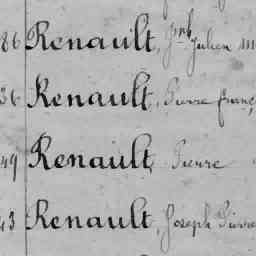 86 Renault, Jph Julien
36 Renault, Pierre Franç
49 Renault, Pierre
43 Renault, Joseph Pierre